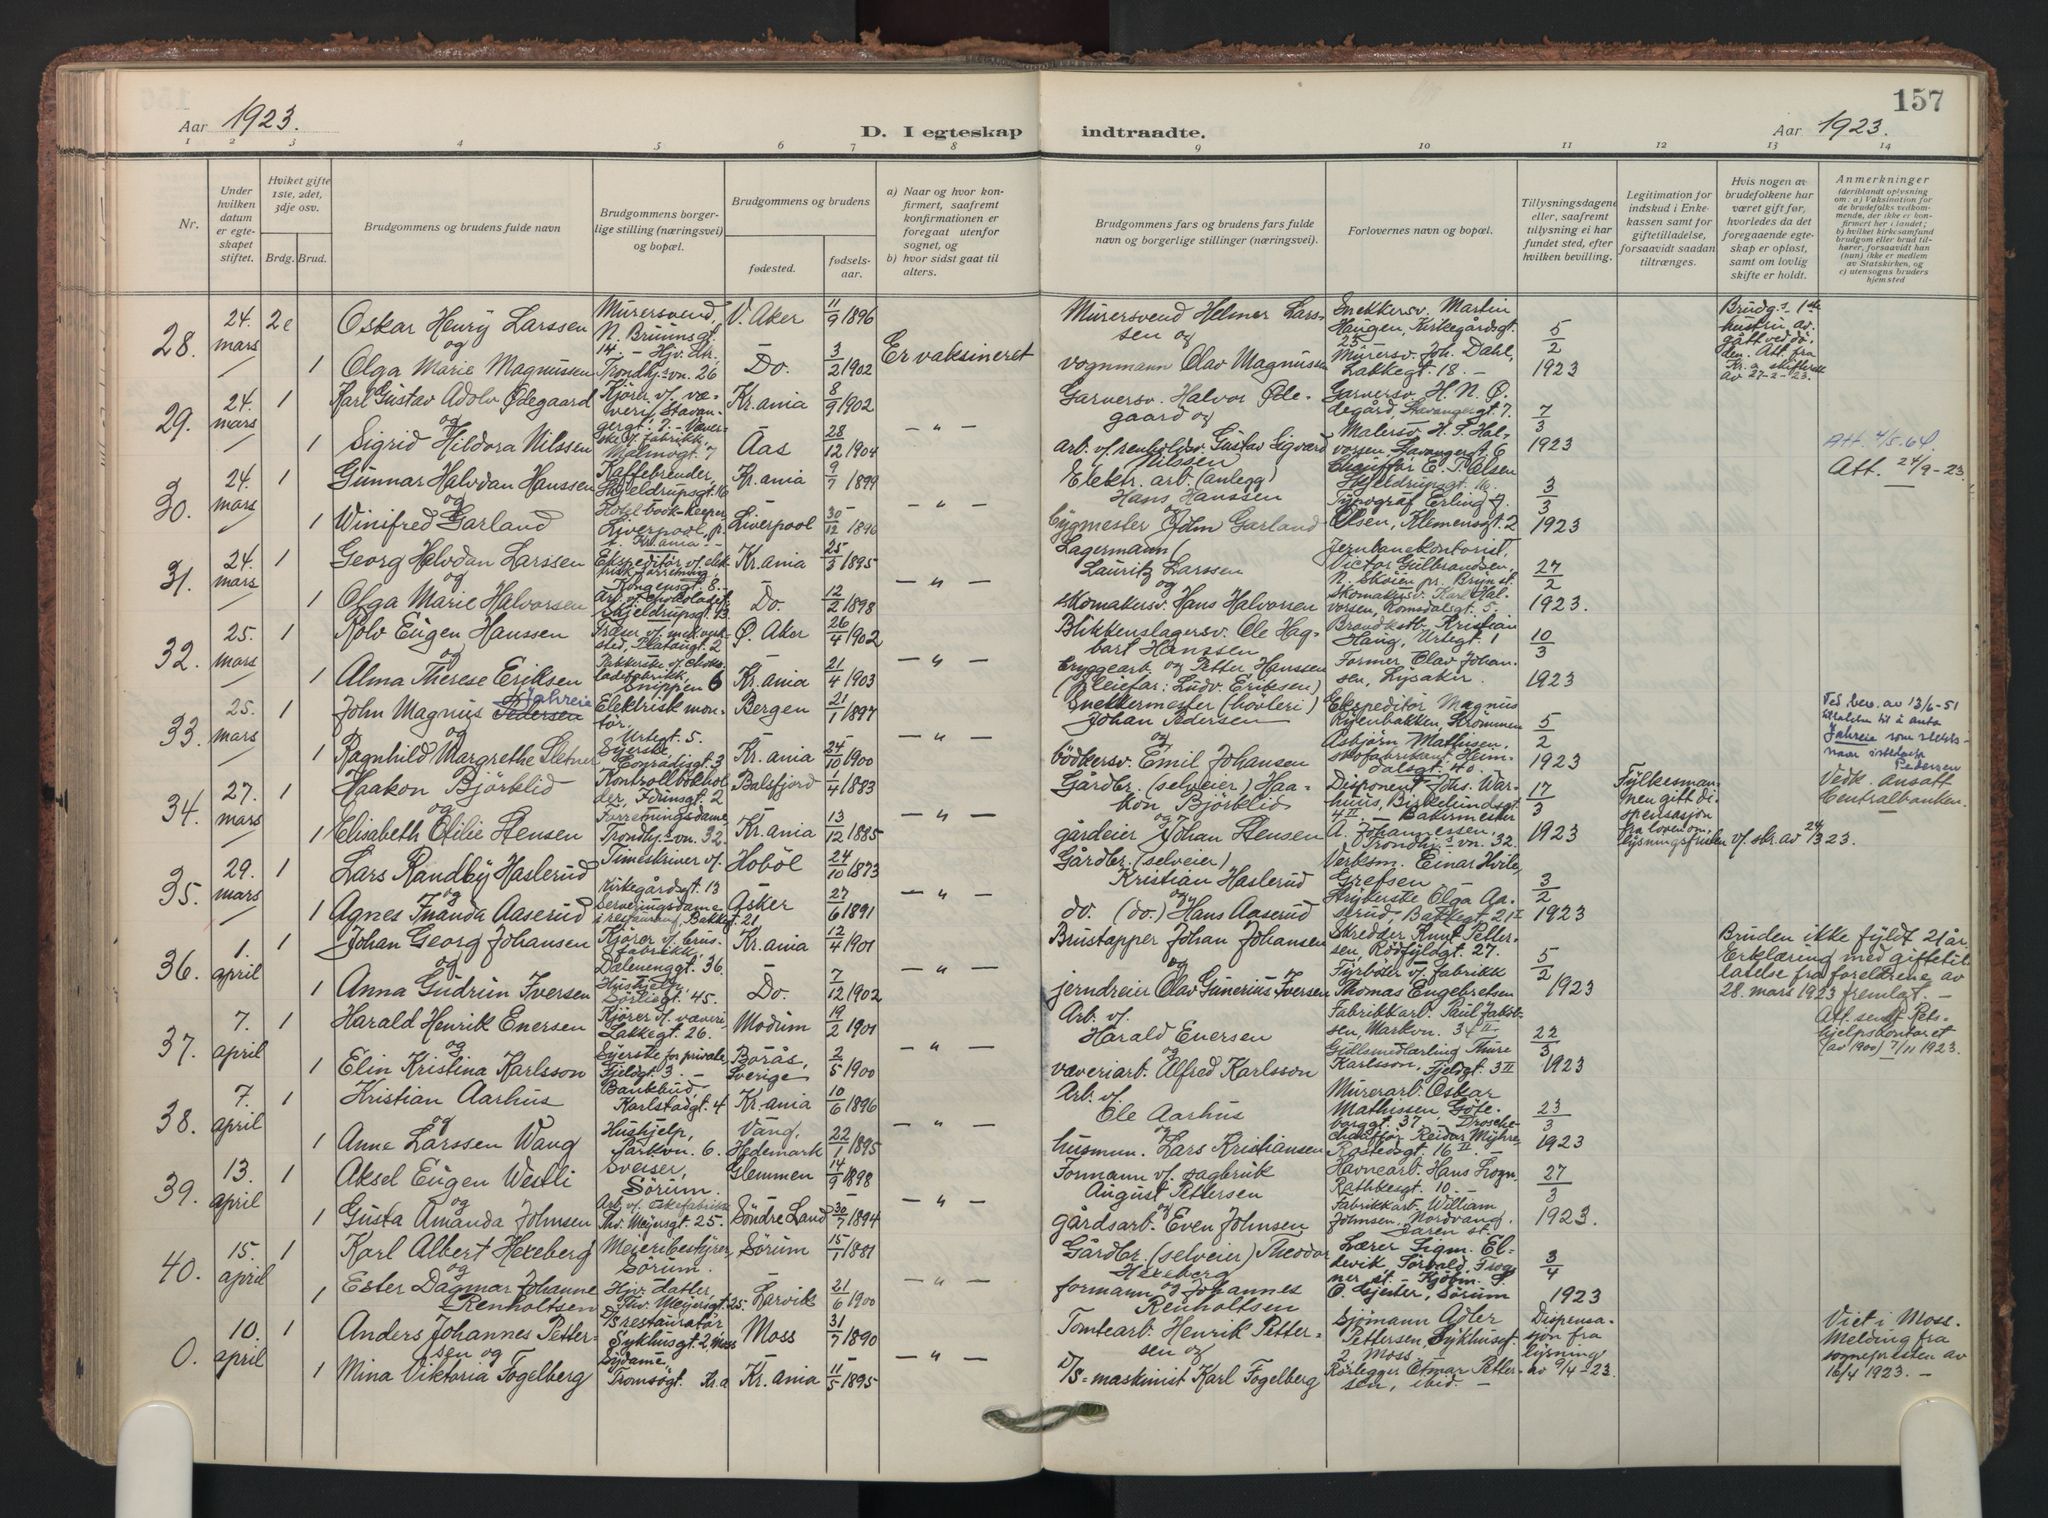 157
Aar 1923.
D. I egteskap indtraadte.
Aar 1923.
1 2 3 4 5 6 7 8 9 10 11 12 13 14
Nr.
Under hvilken datum er egteskapet stiftet.
Hviket gifte 1ste, 2det, 3dje osv.
Brdg. Brud.
Brudgommens og brudens fulde navn
Brudgommens borgerlige stilling (næringsvei) og bopæl.
Brudgommens og brudens
fødested.
fødselsaar.
a) Naar og hvor konfirmert, saafremt konfirmationen er foregaat utenfor sognet, og
b) hvor sidst gaat til alters.
Brudgommens fars og brudens fars fulde navn og borgerlige stillinger (næringsvei).
Forlovernes navn og bopæl.
Tillysningsdagene eller, saafremt tillysning ei har fundet sted, efter hvilken bevilling.
Legitimation for indskud i Enkekassen samt for giftetilladelse, forsaavidt saadan tiltrænges.
Hvis nogen av brudefolkene har været gift før, hvorledes da det foregaaende egteskap er opløst, samt om lovlig skifte er holdt.
Anmerkninger
(deriblandt oplysning om: a) Vaksination for de brudefolks vedkommende, der ikke er konfirmert her i landet; b) hvilket kirkesamfund brudgom eller brud tilhører, forsaavidt han (hun) ikke er medlem av Statskirken, og c) utensogns bruders hjemsted
28. 24. mars 2e Oskar Henry Larssen Murersvend, N. Bruunsgt. 14. V. Aker 11/9 1896
og
1 Olga Marie Magnussen Hjv. Str. Trondhj.s vn. 26 Do. 3/2 1902 Er vaksineret
Murersvend Helmer Larssen og
vognmann Olav Magnussen
Snekkersv. Martin Haugen, Kirkegårdsgt. 25
Murersv. Joh. Dahl, Lakkegt. 18.
5/2 1923
Brudg.s 1ste hustru avgått ved döden. Att. fra Kr.a skifterett av 27-2-'23.
29. 24. mars 1 Karl Gustav Adolv Ødegaard Kjører v. væveri, Stavangergt. 7. Kr.ania 8/9 1902
og
1 Sigrid Hildora Nilssen Væverske v. fabrikk, Malmøgt. 7 Aas 28/12 1904 — " —
Garversv. Halvor Ødegaard og
arb. v. renholdsv. Gustav Sigvard Nilssen
Garversv. H. N. Ødegård, Stavangergt. 7.
Malersv. H. P. Halvorsen, Stavangergt. 6
7/3 1923
Att. 4/5.64
30. 24. mars 1 Gunnar Halvdan Hanssen Kaffebrender, Skjeldrupsgt. 16 Kr.ania 9/7 1899
og
1 Winifred Garland Hotel book-keeper, Liverpool, p. t. Kr.ania Liverpool 30/12 1896 — " —
Elektr. arb. (anlegg) Hans Hanssen
og
bygmester John Garland
Chauffør E. P. Olsen Skjeldrupsgt. 16.
Typograf Erling Olsen, Klemensgt. 2
3/3 1923
Att. 24/9-23
31. 24. mars 1 Georg Halvdan Larssen Ekspeditör v. elektrisk forretning Kongensgt. 8. Kr.ania 25/3 1895
og
1 Olga Marie Halvorsen Arb. v. chokoladef. Skjeldrupsgt. 13. Do. 12/2 1898 — " —
Lagermann Lauritz Larssen
og
skomakersv. Hans Halvorsen
Jernbanekontorist Victor Gulbrandsen, N. Skøien pr. Bryn st.
Skomakersv. Karl Halvorsen, Romsdalsgt. 5.
27/2 1923.
32. 25. mars 1 Rolv Eugen Hanssen Fræser v. mek. verksted, Platougt. 2 Ø. Aker 26/4 1902
og
1 Alma Therese Eriksen Pakkerske v. chokoladefabrikk, Snippen 6 Kr.ania 21/4 1903 — " —
Blikkenslagersv. Ole Hagbart Hanssen
og
bryggearb. Petter Hanssen (Pleiefar: Ludv. Eriksen)
Brandksb. Kristian Haug, Urtegt. 1
Former Olav Johansen, Lysaker.
10/3 1923
33. 25. mars 1 John Magnus Pedersen Jahreie Elektrisk montör, Urtegt. 5. Bergen 21/1 1897
og
1 Ragnhild Margrethe Sletner Syerske Conradisgt. 3 Kr.ania 24/10 1900 — " —
Snekkermester (høvleri) Johan Pedersen
og
bödkersv. Emil Johansen
Ekspeditör Magnus Ryenbakken, Strömmen
Asbjörn Mathisen, skofabrikant, Heimdalsgt. 40.
5/2 1923
Ved bev. av 13/6-51 tillatelse til å anta Jahreie som slektsnavn istedenfor Pedersen
34. 27. mars 1 Haakon Björklid Kontrollbokholder, Töiensgt. 2 Balsfjord 1/4 1883
og
1 Elisabeth Otilie Stensen Forretningsdame, Trondhj.s vn. 32. Kr.ania 13/12 1885 — " —
Gårdbr. (selveier) Haakon Björklid
og
gårdeier Johan Stensen
Disponent Johs. Warhuus, Birkelundsgt. 4 II.
Bakermester A. Johannesen, Trondhj.s vn. 32.
17/3 1923
Fylkesmannen gitt dispensasjon fra loven om lysningsfristen v. skr. av 24/3 23.
Vedk. ansatt Centralbanken.
35. 29. mars 1 Lars Randby Haslerud Timeskriver v. Kirkegårdsgt. 13 Hobøl 24/10 1873
og
1 Agnes Inanda Aaserud Serveringsdame i restaurant, Bakkegt. 21 Asker 27/6 1891 — " —
Gårdbr. (selveier) Kristian Haslerud
og
do. (do.) Hans Aaserud
Verksm. Einar Hvile, Grefsen
Stryerske Olga Aaserud, Bakkegt. 21 II
3/2 1923
36. 1. april 1 Johan Georg Johansen Kjører v. brusfabrikk, Dælenenggt. 36. Kr.ania 12/4 1901
og
1 Anna Gudrun Iversen Hushjelp, Sörligt. 45. Do. 7/12 1902 — " —
Brustapper Johan Johansen
og
jerndreier Olav Gunerius Iversen
Skredder Knut Pettersen, Rødfyldgt. 27.
Fyrböter v. fabrikk Thomas Engebretsen
5/2 1923
Bruden ikke fyldt 21 år. Erklæring med giftetillatelse fra foreldrene av 28. mars 1923 fremlagt. —
37. 7. april 1 Harald Henrik Enersen Kjører v. væveri Lakkegt. 26. Modum 19/2 1901
og
1 Elin Kristina Karlsson Syerske for private, Fjeldgt. 3. Borås, Sverige 2/5 1900 — " —
Arb. v. Harald Enersen
og
væveriarb. Alfred Karlsson
Fabrikkarb. Paul Jakobsen, Markvn. 34 II
Gullsmedlærling Thure Karlsson, Fjeldgt. 3 II
22/3 1923
Att. sendt Retshjelpskontoret (av 1900) 7/11 1923.
38. 7. april 1 Kristian Aarhus Bankbud Karlstadgt. 4 Kr.ania 10/6 1896
og
1 Anne Larssen Wang Hushjelp, Parkvn. 6. Vang, Hedemark 22/1 1895 — " —
Arb. v. Ole Aarhus
og
husmnn. Lars Kristiansen
Murerarb. Oskar Mathissen, Göteborggt. 37.
Droschechauffør Reidar Myhre Rostedsgt. 16 II. —
23/3 1923
39. 13. april 1 Aksel Eugen Westli Sveiser, Sørum. Glemmen 14/9 1898
og
1 Gusta Amanda Johnsen Arb. v. Eskefabrikk Thv. Meyersgt. 25. Söndre Land 30/7 1894 — " —
Formann v. sagbruk August Pettersen
og
gårdsarb. Even Johnsen
Havnearb. Hans Logn Rathkesgt. 10.
Fabrikkarb. William Johnsen, Nordvang, Jaren st.
27/3 1923.
40. 15. april 1 Karl Albert Hexeberg Meieribestyrer Sørum. Sørum 15/7 1881
og
1 Ester Dagmar Johanne Renholtsen Hjv. datter, Thv. Meyersgt. 25. Larvik 21/6 1900 — " —
Gårdbr. (selveier) Theodor Hexeberg
og
formann Johannes Renholtsen
Lærer Sigm. Eldevik, Sörvald, Frogner st. — Kjöbm. S. O. Gjester, Sørum
3/4 1923
0. 10. april 1 Anders Johannes Pettersen og D/S restauratör Sykhusgt. 2, Moss Moss 31/7 1890
1 Mina Viktoria Fogelberg Sydame, Tromsøgt. Kr.a Kr.ania 11/5 1895 — " —
Tomtearb. Henrik Pettersen og
D/S-maskinist Karl Fogelberg
Sjömann Adler Pettersen, Sykhusgt. 2 Moss.
Rörlegger Otmar Pettersen, ibid. —
Dispensasjon fra lysning av 9/4-23.
Viet i Moss. Melding fra sognepresten av 16/4 1923. —